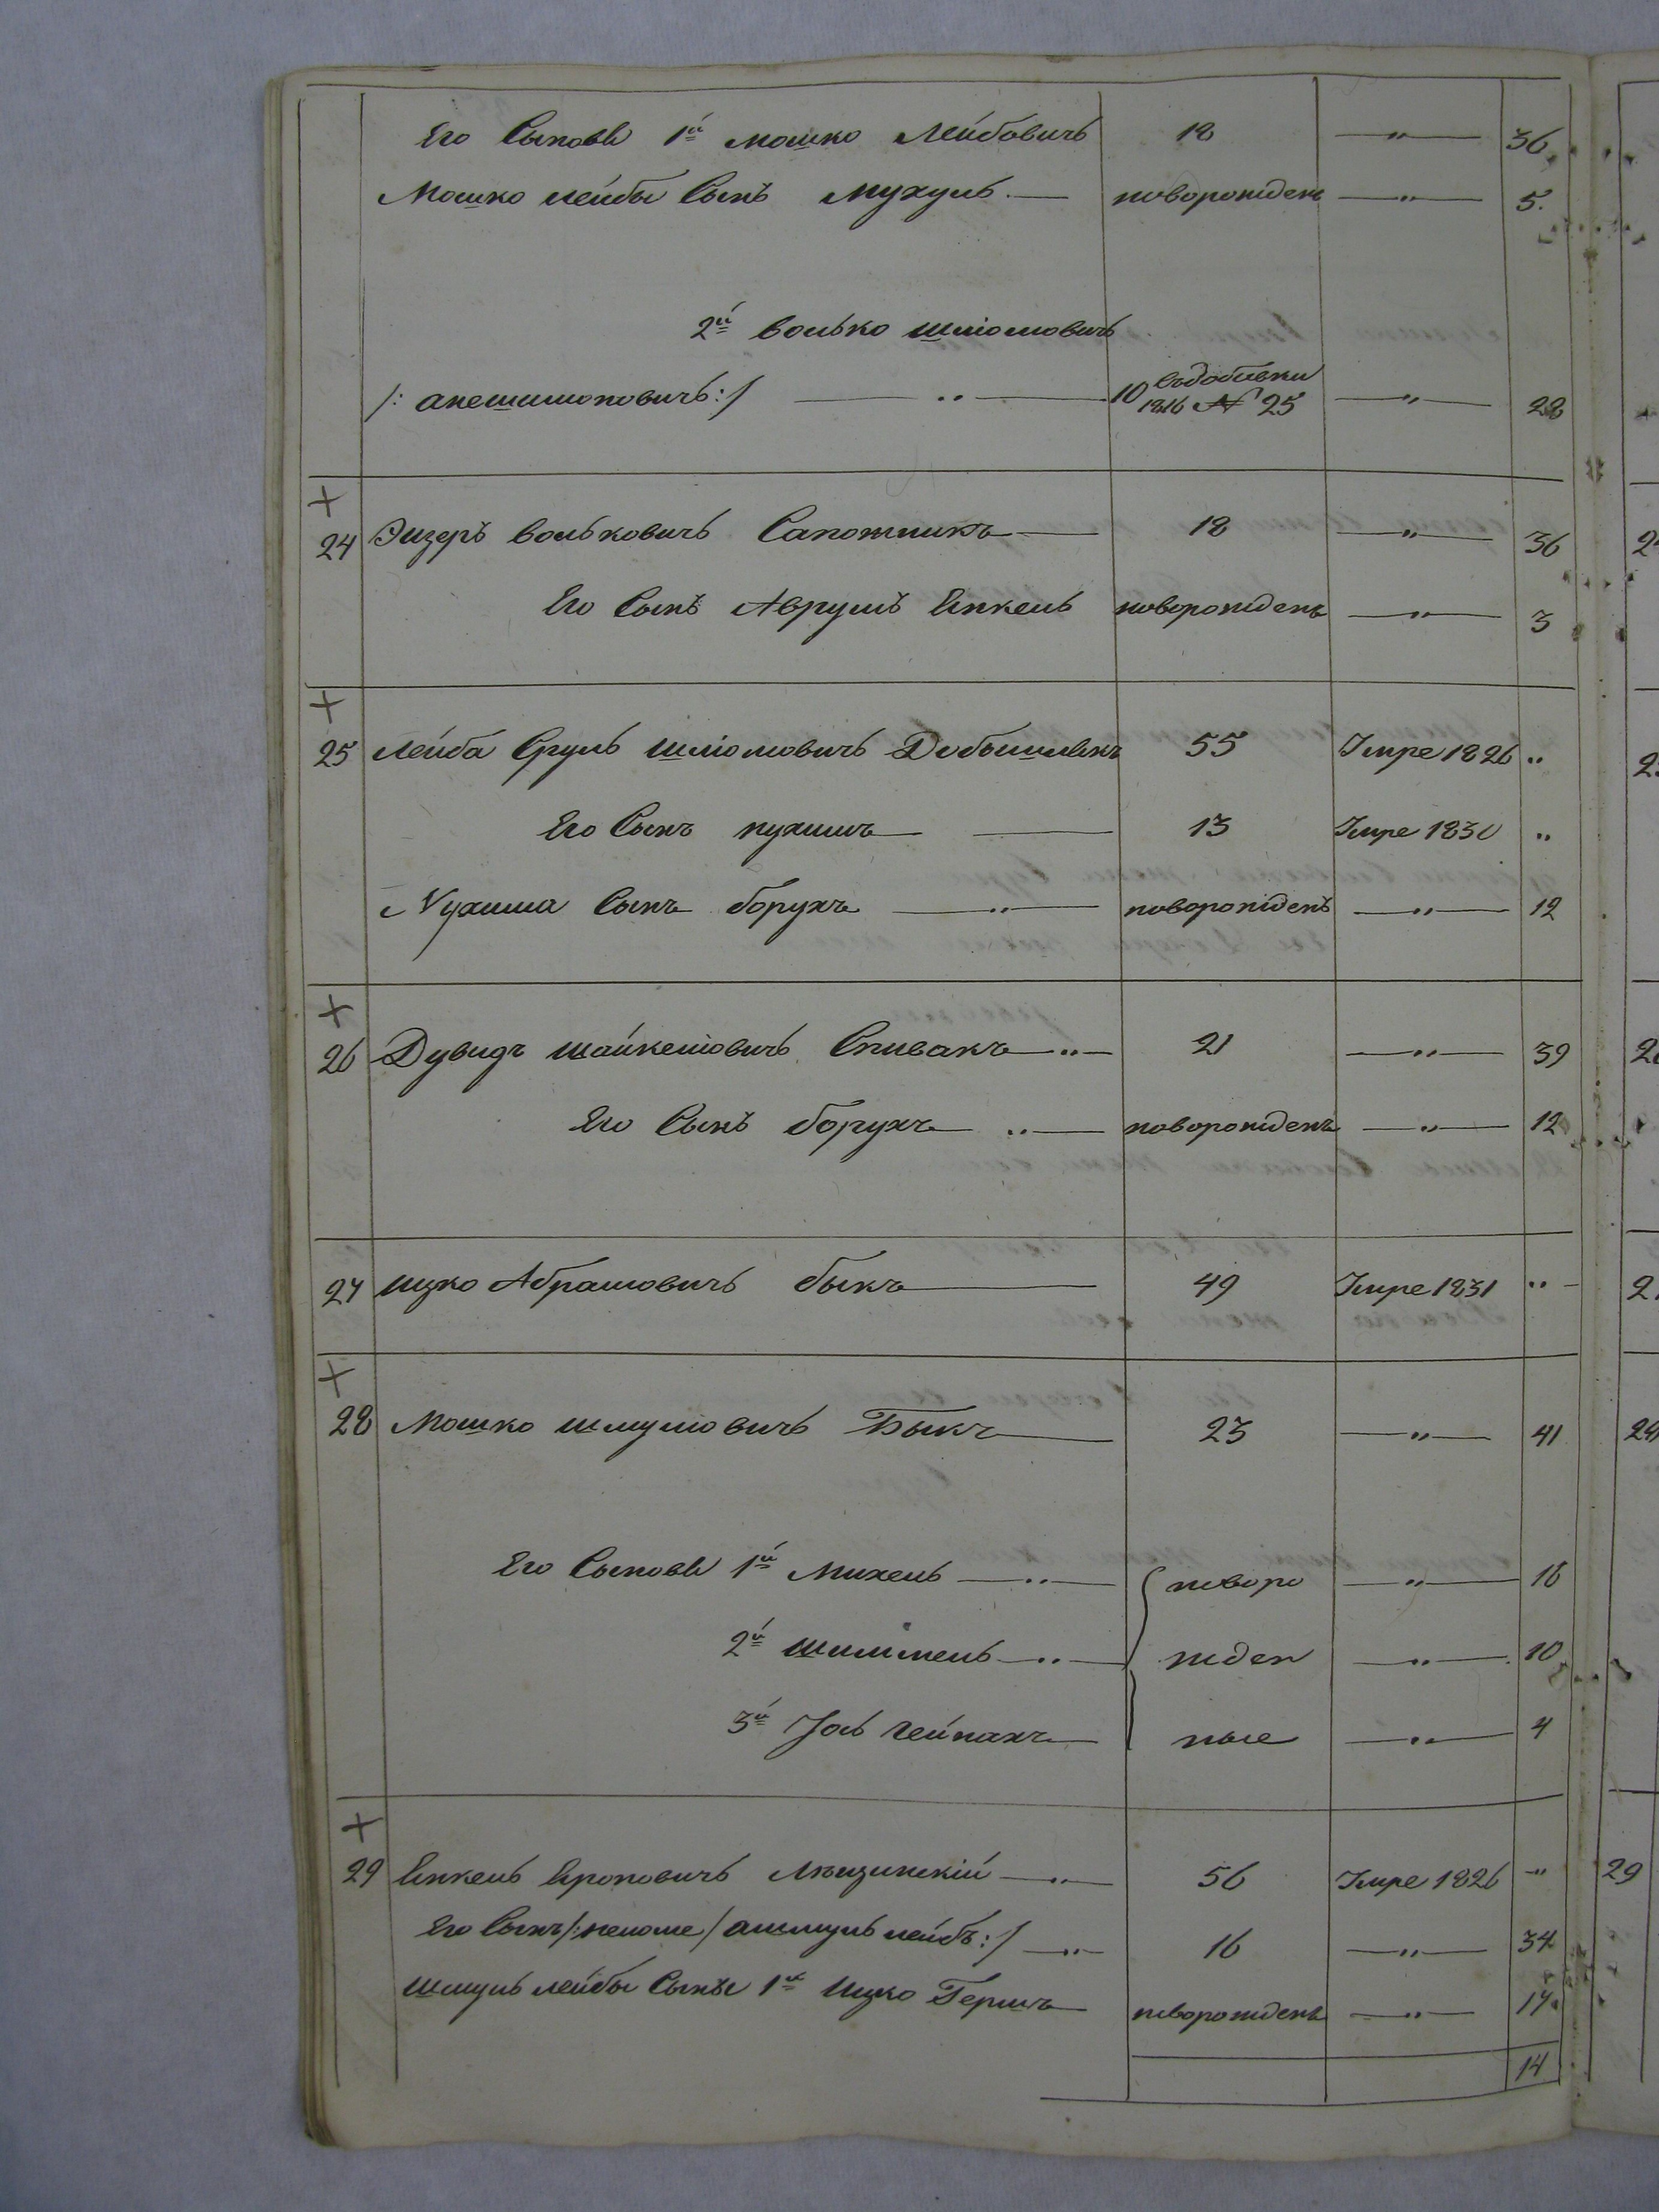 Его Сыновья 1й мошко Лейбовичъ 18 —"— 36
Мошко лейбы Сынъ мухуль — новорожденъ —"— 5.
2й волько шліомовичъ
/: анешлиоповичъ :/ — " — 10 съ добавки
1816 № 25 —"— 28
+
24 Эизеръ вольковичъ Сапожникъ — 18 —"— 36
Его Сынъ Аврумъ Янкель новорожденъ —"— 3
+
25 Лейба Сруль шліомовичъ 55 Умре 1826 "
Его Сынъ нухимъ — 13 Умре 1830 "
Нухима Сынъ борухъ —"— новорожденъ —"— 12
+
26 Дувидъ шайкеліовичъ Спивакъ —"— 21 —"— 39
Его Сынъ борухъ "— новорожденъ —"— 12
27 ицко Абрамовичъ быкъ — 49 Умре 1831 "
+
28 Мошко шмуліовичъ Быкъ — 23 —"— 41
Его Сыновья 1й Михель —"— новоро —"— 18
2й шлиомель —"— жден —"— 10
3й Іось Гейнахъ — ные —"— 4
+
29 Янкель Яроповичъ —"— 56 Умре 1826 "
Его Сынъ /: неноше / ашмуль лейбъ :/ —"— 16 —"— 34
шмуль лейбы Сыны 1й Ицко Гершъ — новорожденъ —"— 17
14
29